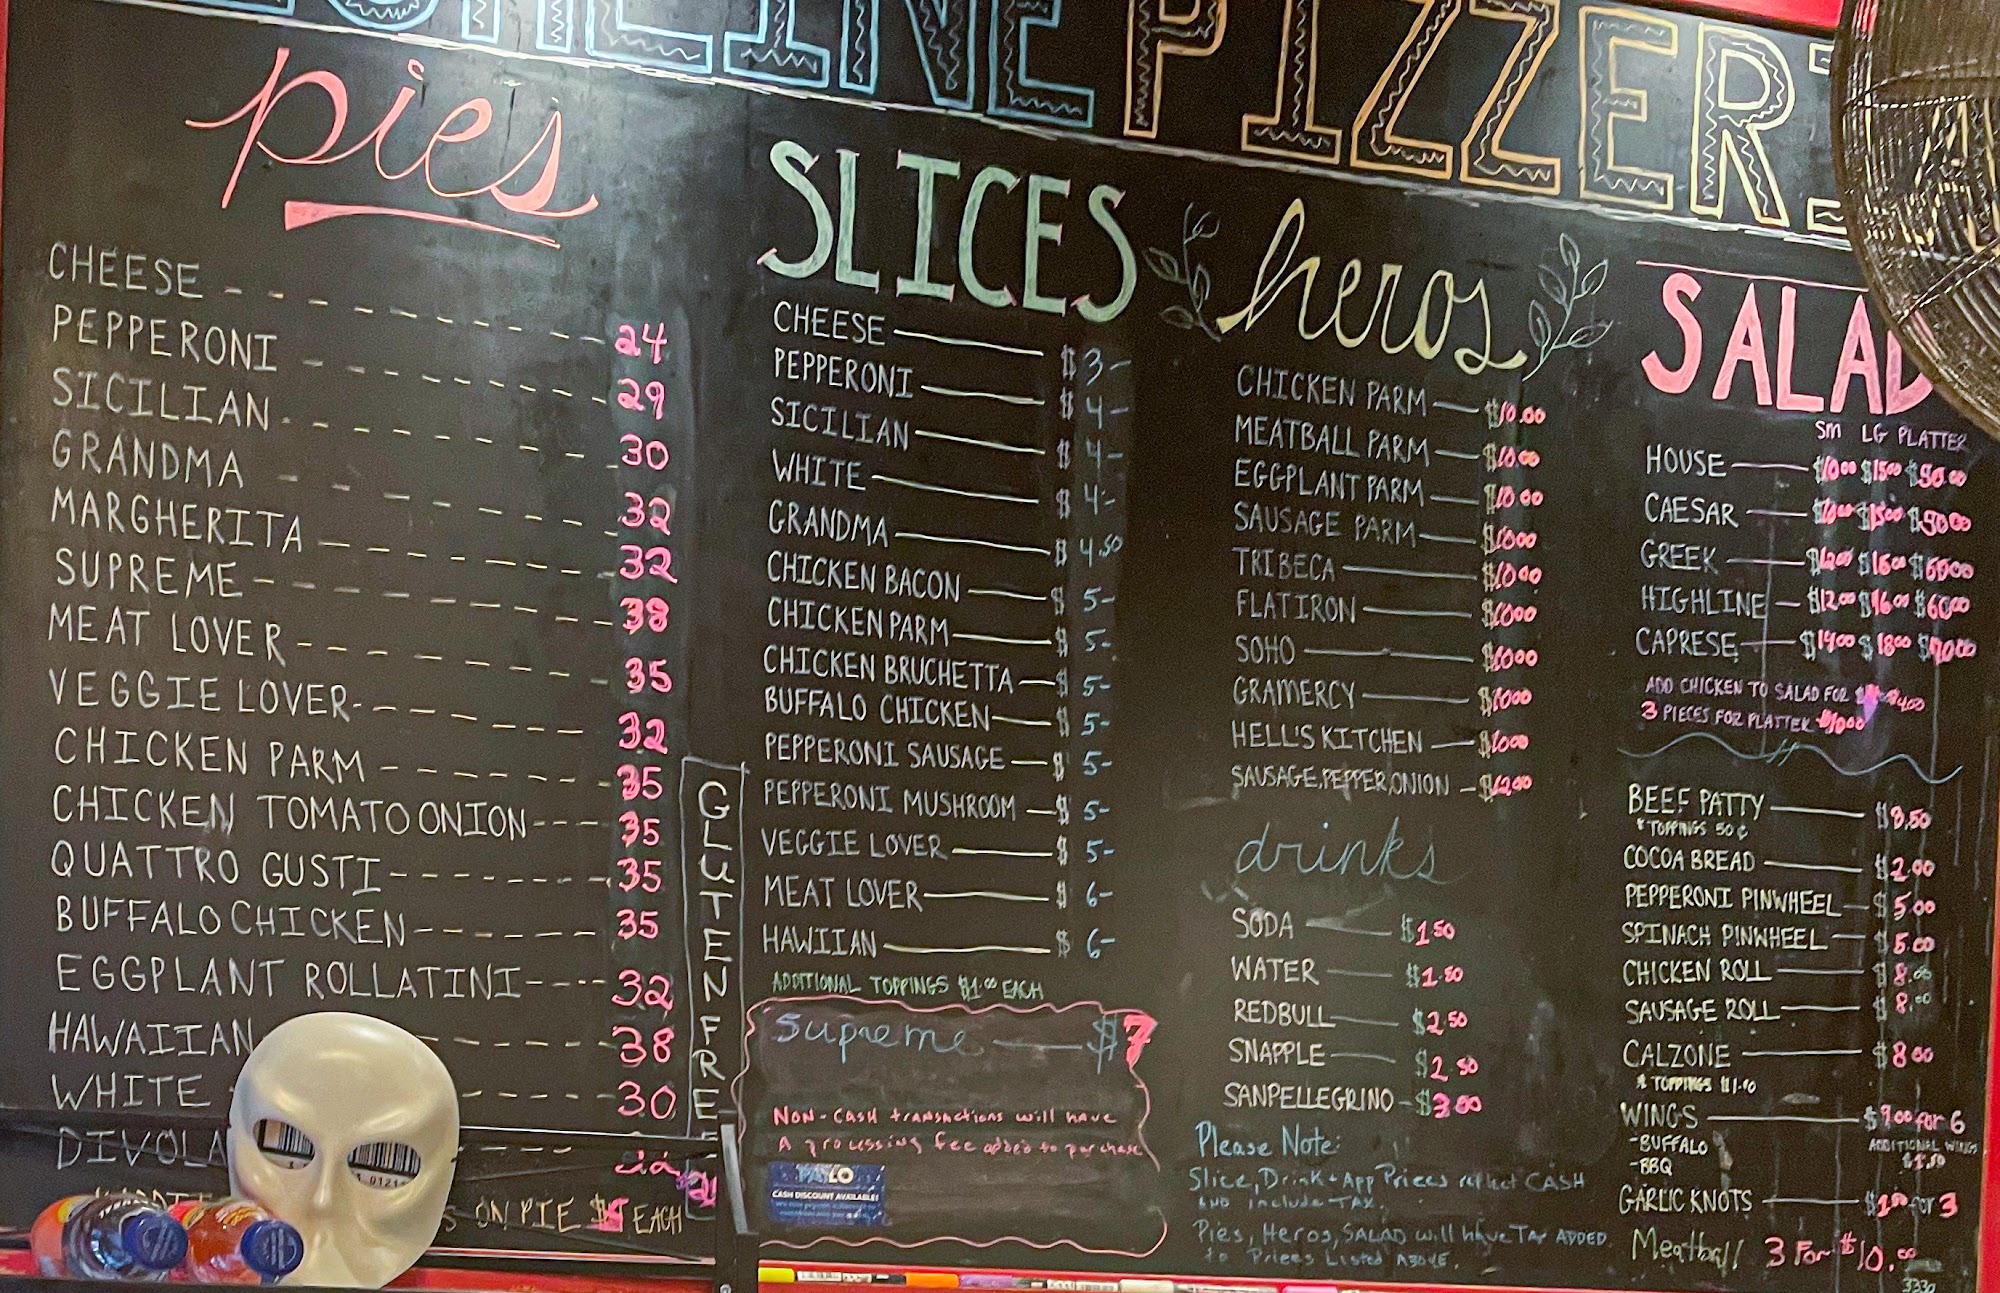 PIZZER
pies
CHEESE 24
PEPPERONI 29
SICILIAN 30
GRANDMA 32
MARGHERITA 32
SUPREME 38
MEAT LOVER 35
VEGGIE LOVER 32
CHICKEN PARM 35
CHICKEN TOMATO ONION 35
QUATTRO GUSTI 35
BUFFALO CHICKEN 35
EGGPLANT ROLLATINI 32
HAWAIIAN 38
WHITE 30
DIVOLA
ON PIE EACH
GLUTEN FREE
SLICES
CHEESE $ 3-
PEPPERONI $ 4-
SICILIAN $ 4-
WHITE $ 4-
GRANDMA $ 4.50
CHICKEN BACON $ 5-
CHICKEN PARM $ 5-
CHICKEN BRUCHETTA $ 5-
BUFFALO CHICKEN $ 5-
PEPPERONI SAUSAGE $ 5-
PEPPERONI MUSHROOM $ 5-
VEGGIE LOVER $ 5-
MEAT LOVER $ 6-
HAWIIAN $ 6-
ADDITIONAL TOPPINGS $1.00 EACH
Supreme $7
NON-CASH transactions will have
A processing fee added to purchase
CASH DISCOUNT AVAILABLE!
heros
CHICKEN PARM $10.00
MEATBALL PARM $10.00
EGGPLANT PARM $10.00
SAUSAGE PARM $10.00
TRIBECA $10.00
FLATIRON $10.00
SOHO $10.00
GRAMERCY $10.00
HELL'S KITCHEN $10.00
SAUSAGE, PEPPER, ONION $12.00
drinks
SODA $1.50
WATER $1.50
REDBULL $2.50
SNAPPLE $2.50
SANPELLEGRINO $3.00
Please Note:
Slice, Drink + App Prices reflect CASH
AND include TAX.
Pies, Heros, SALAD will have TAX ADDED
to Prices Listed ABOVE.
SALAD
SM LG PLATTER
HOUSE $10.00 $15.00 $50.00
CAESAR $10.00 $15.00 $50.00
GREEK $12.00 $16.00 $60.00
HIGHLINE $12.00 $16.00 $60.00
CAPRESE $14.00 $18.00 $70.00
ADD CHICKEN TO SALAD FOR $4.00
3 PIECES FOR PLATTER $10.00
BEEF PATTY $3.50
* TOPPINGS 50¢
COCOA BREAD $2.00
PEPPERONI PINWHEEL $5.00
SPINACH PINWHEEL $5.00
CHICKEN ROLL $8.00
SAUSAGE ROLL $8.00
CALZONE $8.00
* TOPPINGS
WINGS $9.00 for 6
-BUFFALO ADDITIONAL WINGS
-BBQ $1.50
GARLIC KNOTS for 3
Meatball 3 For $10.00